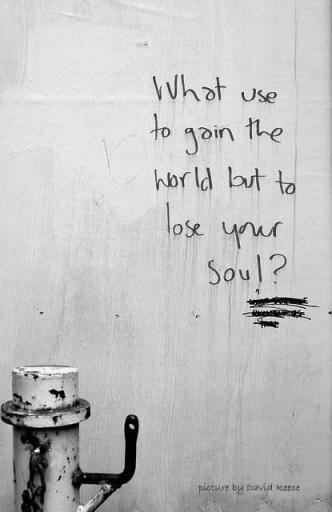 What use
to gain the
world but to
lose your
soul?
picture by David Reece